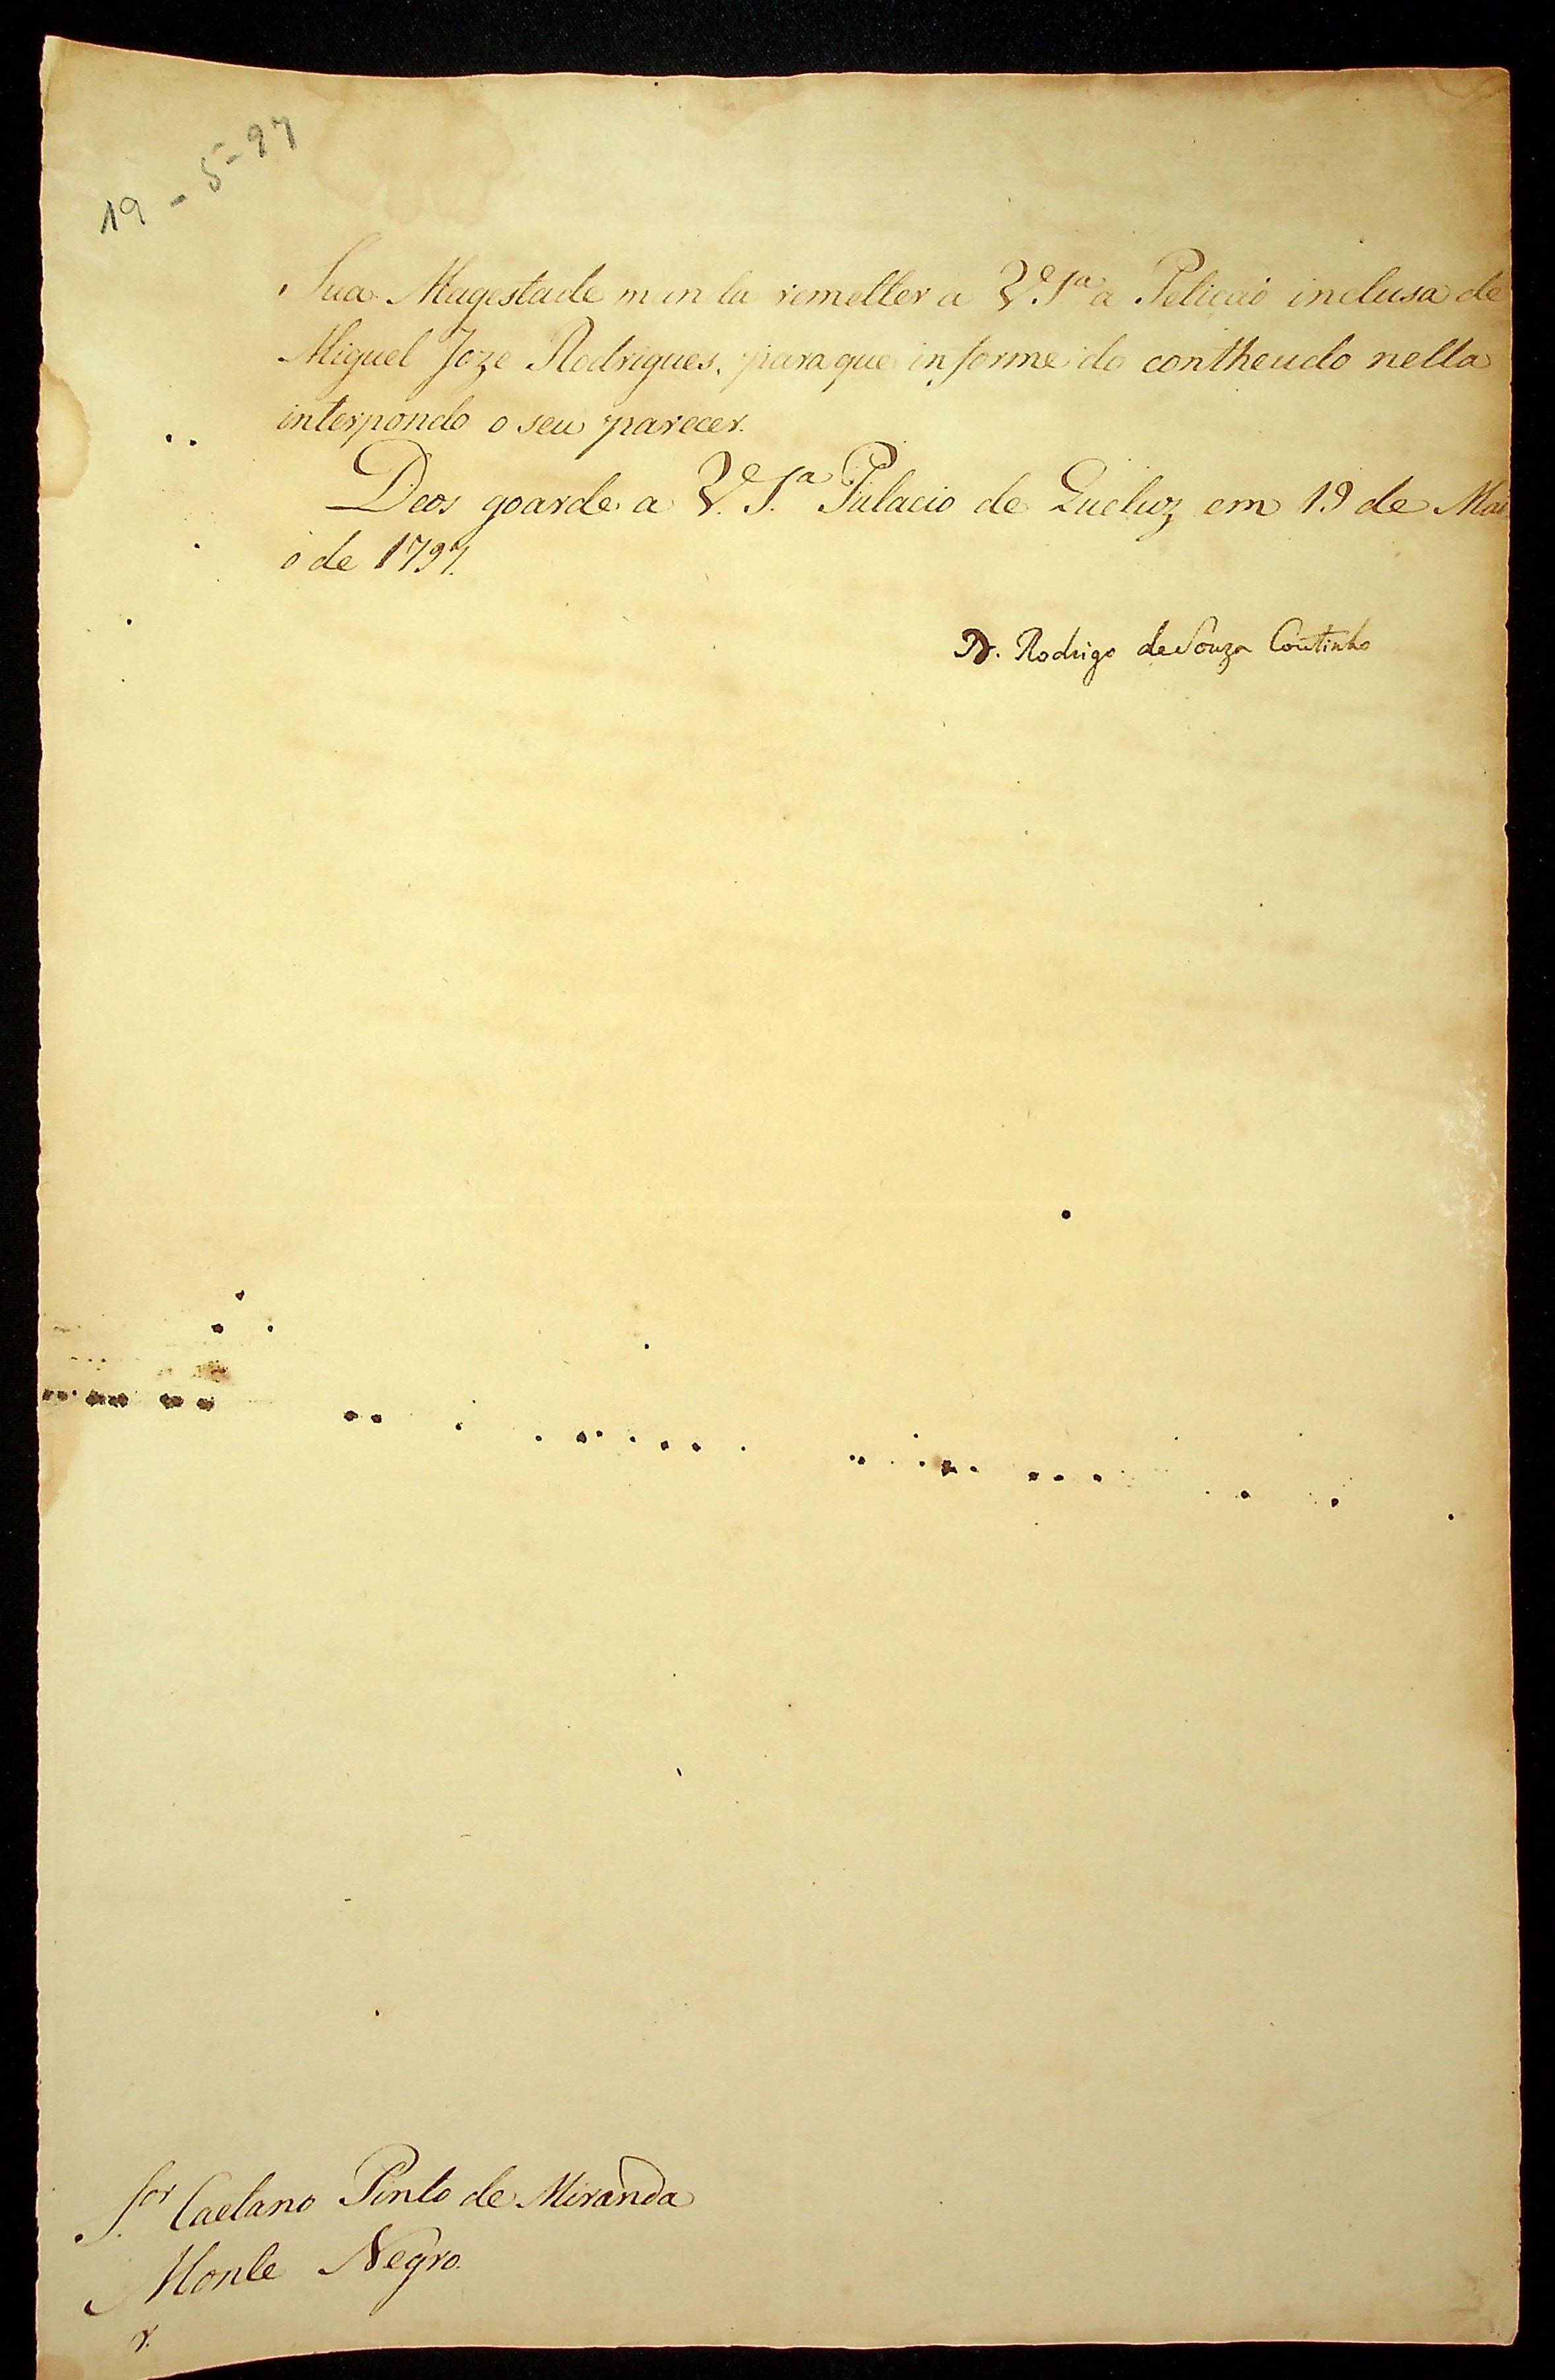 19-5-97
Sua Magestade manda remetter a V.S.ª a Petiçaõ inclusa de
Miguel Joze Rodrigues, para que informe do contheudo nella
interpondo o seu parecer.
Deos goarde a V.S.ª Palacio de Queluz em 19 de Mai
o de 1797.
D. Rodrigo de Souza Coutinho
S.or Caetano Pinto de Miranda
Monte Negro.